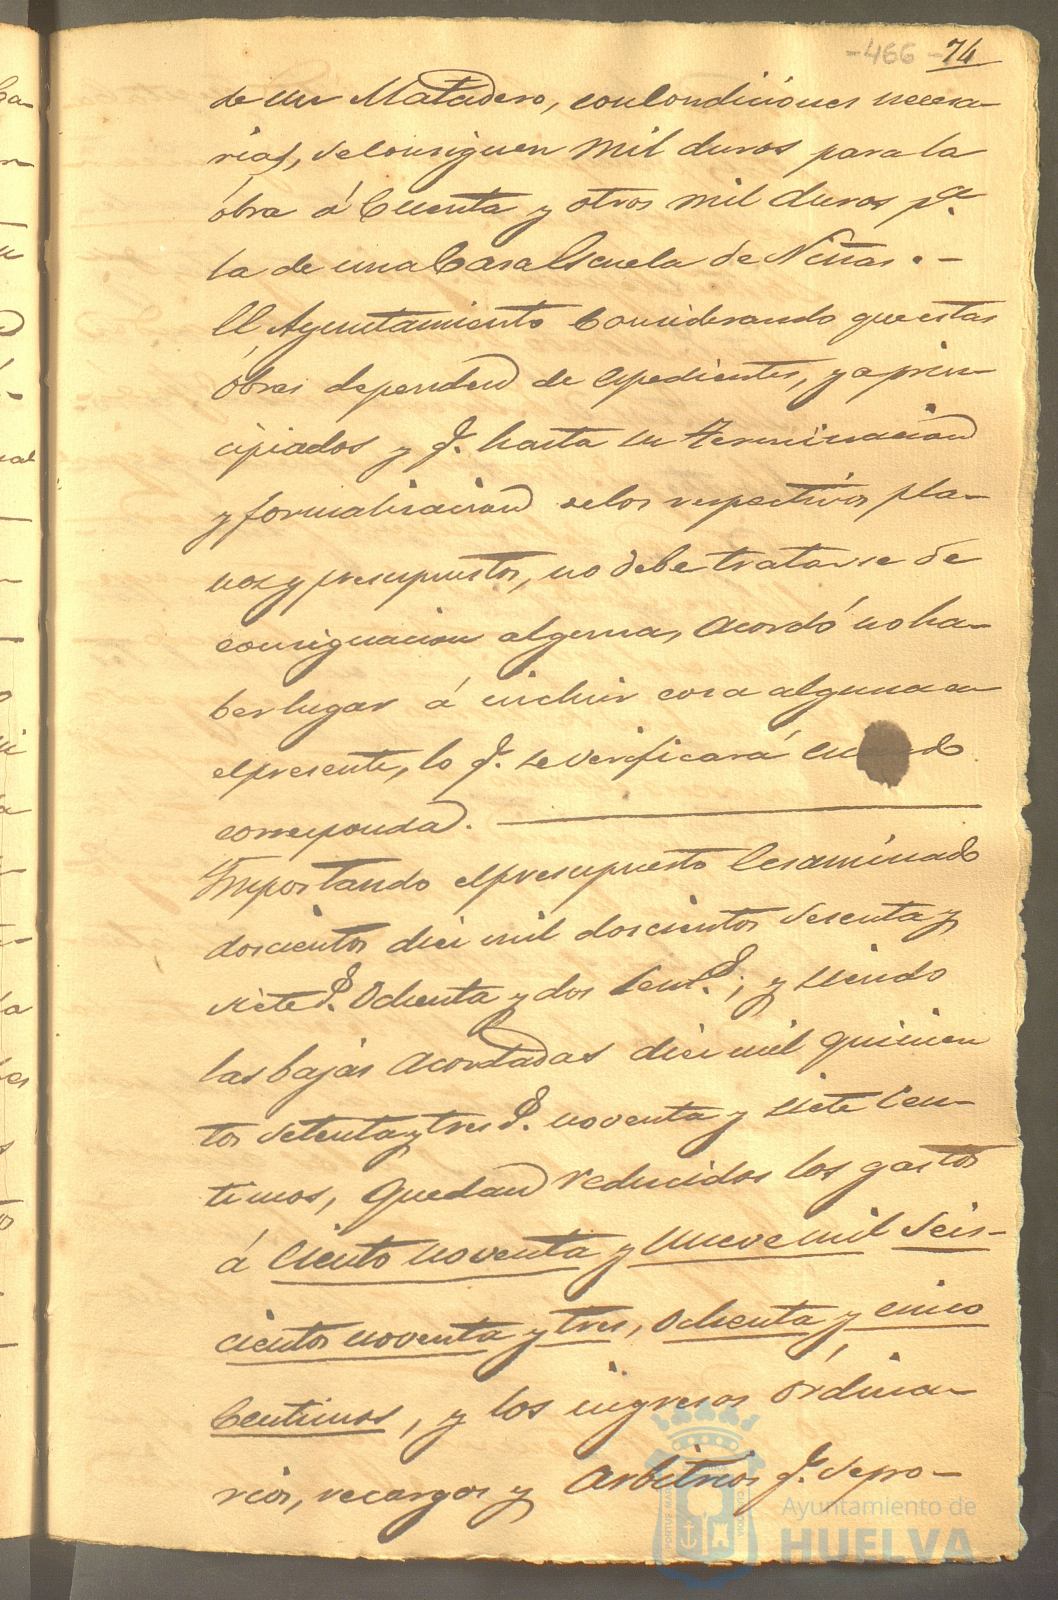 -466- 74
de un Matadero, con Condiciónes necesa-
rias, se Consiguen mil duros para la
óbra á Cuenta y otros mil duros p.ª
la de una Casa Escuela de Niñas. -
El Ayuntamiento Considerando que estas
óbras dependen de espedientes, ya prin-
cipiados y q.e hasta su terminacion
y formalizacion de los respectivos pla-
nos y presupuestos, no debe tratarse de
consignacion alguna, acordó no ha-
ber lugar á incluir cosa alguna en
el presente, lo q.e se verificará cuando
corresponda.
Importando el presupuesto Ecsaminado
doscientos diez mil doscientos sesenta y
siete P.s Ochenta y dos Cent.s; y siendo
las bajas acordadas diez mil quinien
tos setenta y tres P.s noventa y siete Cen-
timos, quedan reducidos los gastos
á Ciento noventa y nueve mil Seis-
cientos noventa y tres, Ochenta y cinco
Centimos, y los ingresos órdina-
rios, recargos y arbitrios q.e se pro-
Ayuntamiento de
HUELVA